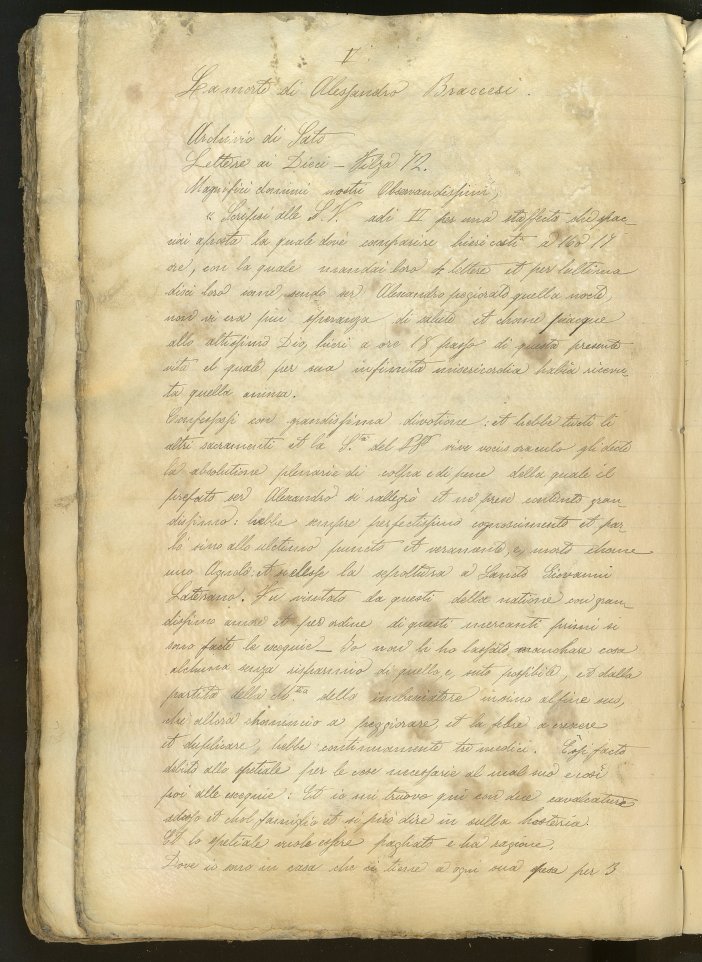 I
La morte di Alessandro Braccesi.
Archivio di Stato
Lettere ai Dieci — Filza 72.
Magnifici domini nostri Observandissimi,
« Scripsi alle S.V. adi II per una staffetta
aposta la quale dové comparire hieri costì a 16 o 17
ore, con la quale mandai loro 4 lettere et per lultima
dissi loro come sendo ser Alexandro pegiorato quella nocte,
non vi era più speranza di salute et chome piacque
allo altissimo Dio, hieri a ore 18 passò di questa presente
vita el quale per sua infinita misericordia habia ricevu-
ta quella anima.
Confessossi con grandissima divotione: et hebbe tucti li
altri sacramenti et la S.tà del vive vocis oraculo gli dette
la absolutione plenaria di colpa e di pena della quale il
prefato ser Alexandro si rallegrò et ne prese contento gran-
dissimo: hebbe sempre perfectissimo cognoscimento et par-
lò sino allo ulctimo puncto et veramente, e, morto chome
uno Agnolo: et si elesse la sepoltura a Sancto Giovanni
Laterano. Fu visitato da questi della natione con gran-
dissimo amore et per ordine di questi mercanti primi si
sono facte le exequie — Io non li ho lassato manchare cosa
alchuna senza risparmio di quello, e, suto possibile, et dalla
partita della M.tia dello imbasciatore insino al fine suo,
che allora chominciò a peggiorare et la febre a crescere
et duplicare, hebbe continuamente tre medici. Èssi facto
debito allo spetiale per le cose necessarie al mal suo e così
poi alle exequie: Et io mi truovo qui con due cavalcature
adosso et chol famiglio et si può dire in sulla hosteria.
Et lo spetiale vuole essere pagato e ha ragione.
Dove io sono in casa che si tiene a ogni sua spesa per 3